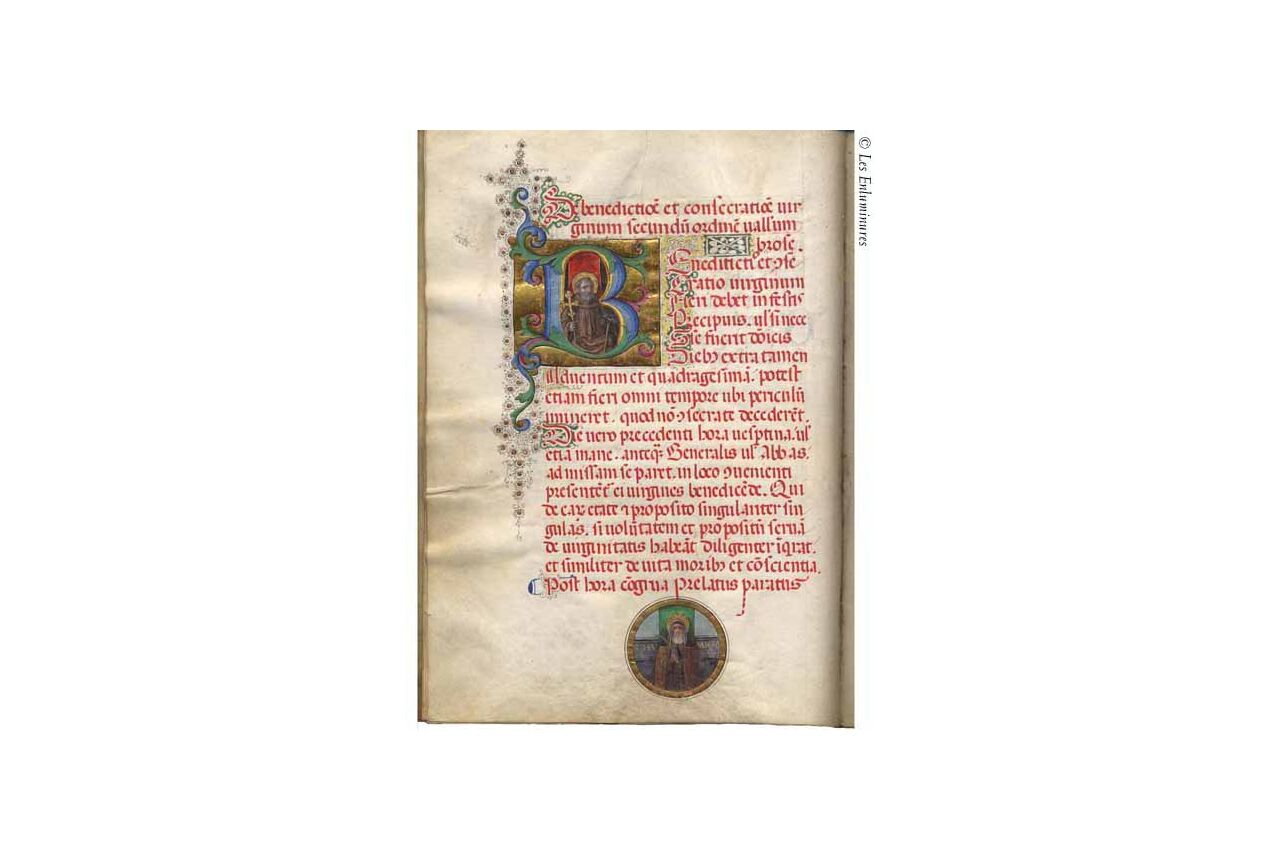 De benedictiōe et consecratiōe uir
ginum secundū ordinē uallum
brose.
Benedictio et ꝯse
cratio uirginum
fieri debet in festis
precipuis. ul' si nece
sse fuerit dōicis
Dieb9 extra tamen
Aduentum et quadragesimā. potest
etiam fieri omni tempore ubi periculū
imineret. quod nō ꝯsecrate decederēt.
Die uero precedenti hora uesptina. ul'
etiā mane. anteq̄ Generalis ul' Abbas.
ad missam se paret. in loco ꝯuenienti
presentēt ei uirgines benedicēde. Qui
de earū etate et proposito singulariter sin
gulas. si uolūtatem et propositū seruā
de uirginitatis habeāt diligenter iq̄rat.
et similiter de uita morib9 et cōscientia.
Post hora cōgrua prelatus paratus
© Les Enluminures